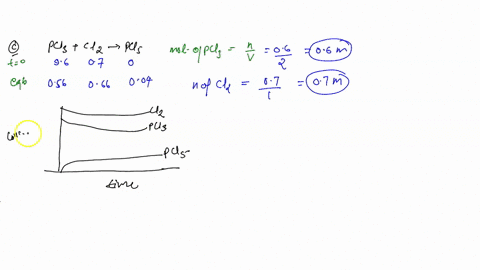 C PCl3 + Cl2 → PCl5
t=0 0.6 0.7 0
eqb 0.56 0.66 0.04
mol. of PCl3 = n/V = 0.6/2 = 0.6 m
n of Cl2 = 0.7/1 = 0.7 m
Cl2
PCl3
PCl5
time